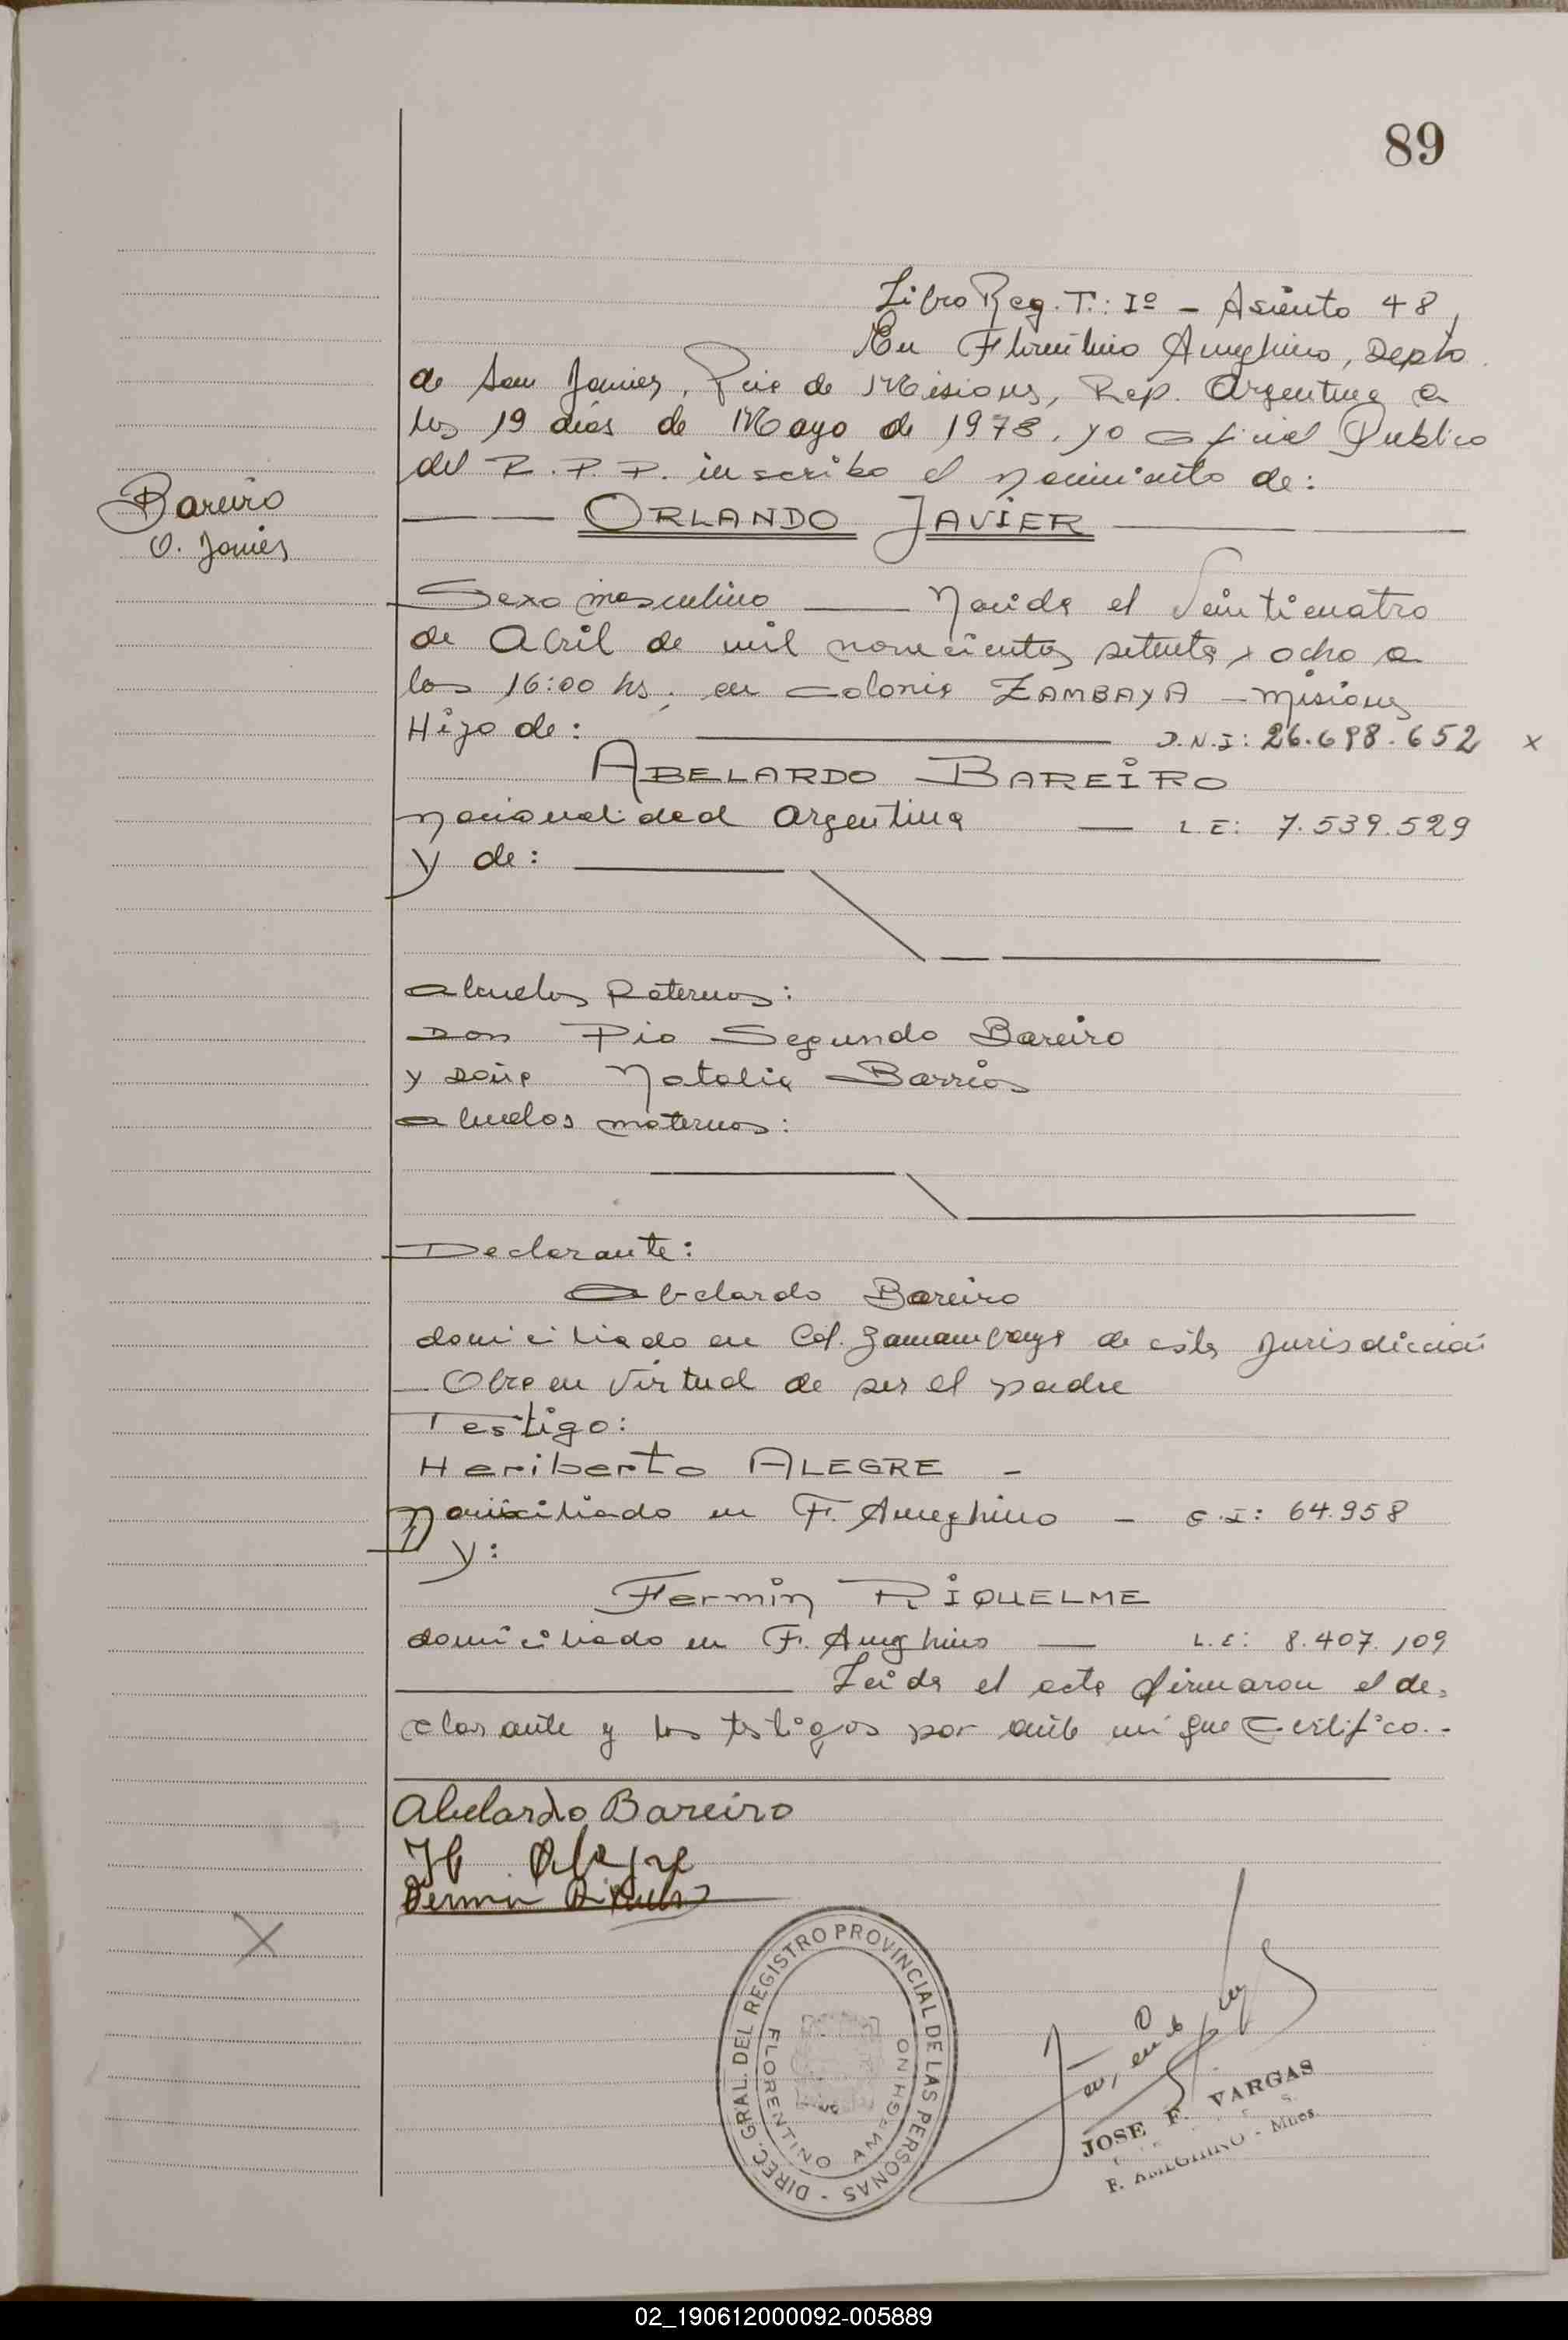 89
Libro Reg. T.: Iº - Asiento 48,
En Florentino Ameghino, Depto.
de San Javier, Pcia de Misiones, Rep. Argentina a
los 19 dias de Mayo de 1978. yo Oficial Publico
del R. P. P. inscribo el nacimiento de:
Bareiro
O. Javier
ORLANDO JAVIER
Sexo masculino Nacida el Veinticuatro
de Abril de mil novecientos setenta y ocho a
las 16:00 hs; en Colonia ZAMBAYA - Misiones
Hijo de: D.N.I: 26.698.652 x
ABELARDO BAREIRO
nacionalidad Argentina L E: 7.539.529
y de:
abuelos Paternos:
Don Pio Segundo Bareiro
y Doña Natalia Barrios
abuelos maternos:
Declarante:
Abelardo Bareiro
domiciliado en Col. de esta Jurisdiccion
Obra en virtud de ser el padre
Testigo:
Heriberto ALEGRE -
Domiciliado en F. Ameghino - C.I: 64.958
y:
Fermin RIQUELME
domiciliado en F. Ameghino L.E: 8.407.109
Leida el acta firmaron el de-
clarante y los testigos por ante mi que Certifico.-
Abelardo Bareiro
H Alegre
Fermin Riquelme
X
DIREC. GRAL. DEL REGISTRO PROVINCIAL DE LAS PERSONAS -
FLORENTINO AMEGHINO
JOSE F. VARGAS
F. AMEGHINO - Mnes.
02_190612000092-005889